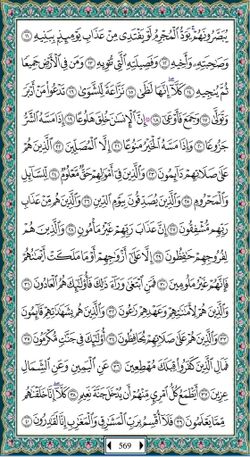 يُبَصَّرُونَهُمْ يَوَدُّ ٱلْمُجْرِمُ لَوْ يَفْتَدِى مِنْ عَذَابِ يَوْمِئِذٍۭ بِبَنِيهِ ١١
وَصَٰحِبَتِهِۦ وَأَخِيهِ ١٢ وَفَصِيلَتِهِ ٱلَّتِى تُـْٔوِيهِ ١٣ وَمَن فِى ٱلْأَرْضِ جَمِيعًا
ثُمَّ يُنجِيهِ ١٤ كَلَّآ إِنَّهَا لَظَىٰ ١٥ نَزَّاعَةً لِّلشَّوَىٰ ١٦ تَدْعُوا۟ مَنْ أَدْبَرَ
وَتَوَلَّىٰ ١٧ وَجَمَعَ فَأَوْعَىٰٓ ١٨ ۞ إِنَّ ٱلْإِنسَٰنَ خُلِقَ هَلُوعًا ١٩ إِذَا مَسَّهُ ٱلشَّرُّ
جَزُوعًا ٢٠ وَإِذَا مَسَّهُ ٱلْخَيْرُ مَنُوعًا ٢١ إِلَّا ٱلْمُصَلِّينَ ٢٢ ٱلَّذِينَ هُمْ
عَلَىٰ صَلَاتِهِمْ دَآئِمُونَ ٢٣ وَٱلَّذِينَ فِىٓ أَمْوَٰلِهِمْ حَقٌّ مَّعْلُومٌ ٢٤ لِّلسَّآئِلِ
وَٱلْمَحْرُومِ ٢٥ وَٱلَّذِينَ يُصَدِّقُونَ بِيَوْمِ ٱلدِّينِ ٢٦ وَٱلَّذِينَ هُم مِّنْ عَذَابِ
رَبِّهِم مُّشْفِقُونَ ٢٧ إِنَّ عَذَابَ رَبِّهِمْ غَيْرُ مَأْمُونٍ ٢٨ وَٱلَّذِينَ هُمْ
لِفُرُوجِهِمْ حَٰفِظُونَ ٢٩ إِلَّا عَلَىٰٓ أَزْوَٰجِهِمْ أَوْ مَا مَلَكَتْ أَيْمَٰنُهُمْ
فَإِنَّهُمْ غَيْرُ مَلُومِينَ ٣٠ فَمَنِ ٱبْتَغَىٰ وَرَآءَ ذَٰلِكَ فَأُو۟لَٰٓئِكَ هُمُ ٱلْعَادُونَ ٣١
وَٱلَّذِينَ هُمْ لِأَمَٰنَٰتِهِمْ وَعَهْدِهِمْ رَٰعُونَ ٣٢ وَٱلَّذِينَ هُم بِشَهَٰدَٰتِهِمْ قَآئِمُونَ
٣٣ وَٱلَّذِينَ هُمْ عَلَىٰ صَلَاتِهِمْ يُحَافِظُونَ ٣٤ أُو۟لَٰٓئِكَ فِى جَنَّٰتٍ مُّكْرَمُونَ ٣٥
فَمَالِ ٱلَّذِينَ كَفَرُوا۟ قِبَلَكَ مُهْطِعِينَ ٣٦ عَنِ ٱلْيَمِينِ وَعَنِ ٱلشِّمَالِ
عِزِينَ ٣٧ أَيَطْمَعُ كُلُّ ٱمْرِئٍ مِّنْهُمْ أَن يُدْخَلَ جَنَّةَ نَعِيمٍ ٣٨ كَلَّآ إِنَّا خَلَقْنَٰهُم
مِّمَّا يَعْلَمُونَ ٣٩ فَلَآ أُقْسِمُ بِرَبِّ ٱلْمَشَٰرِقِ وَٱلْمَغَٰرِبِ إِنَّا لَقَٰدِرُونَ ٤٠
569